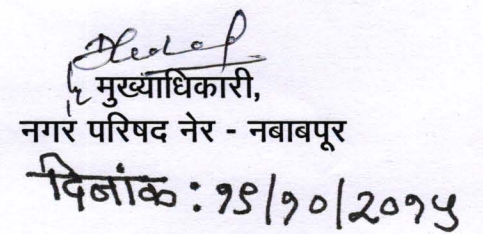 मुख्याधिकारी,
नगर परिषद नेर - नबाबपूर
दिनांक : १९/१०/२०१५